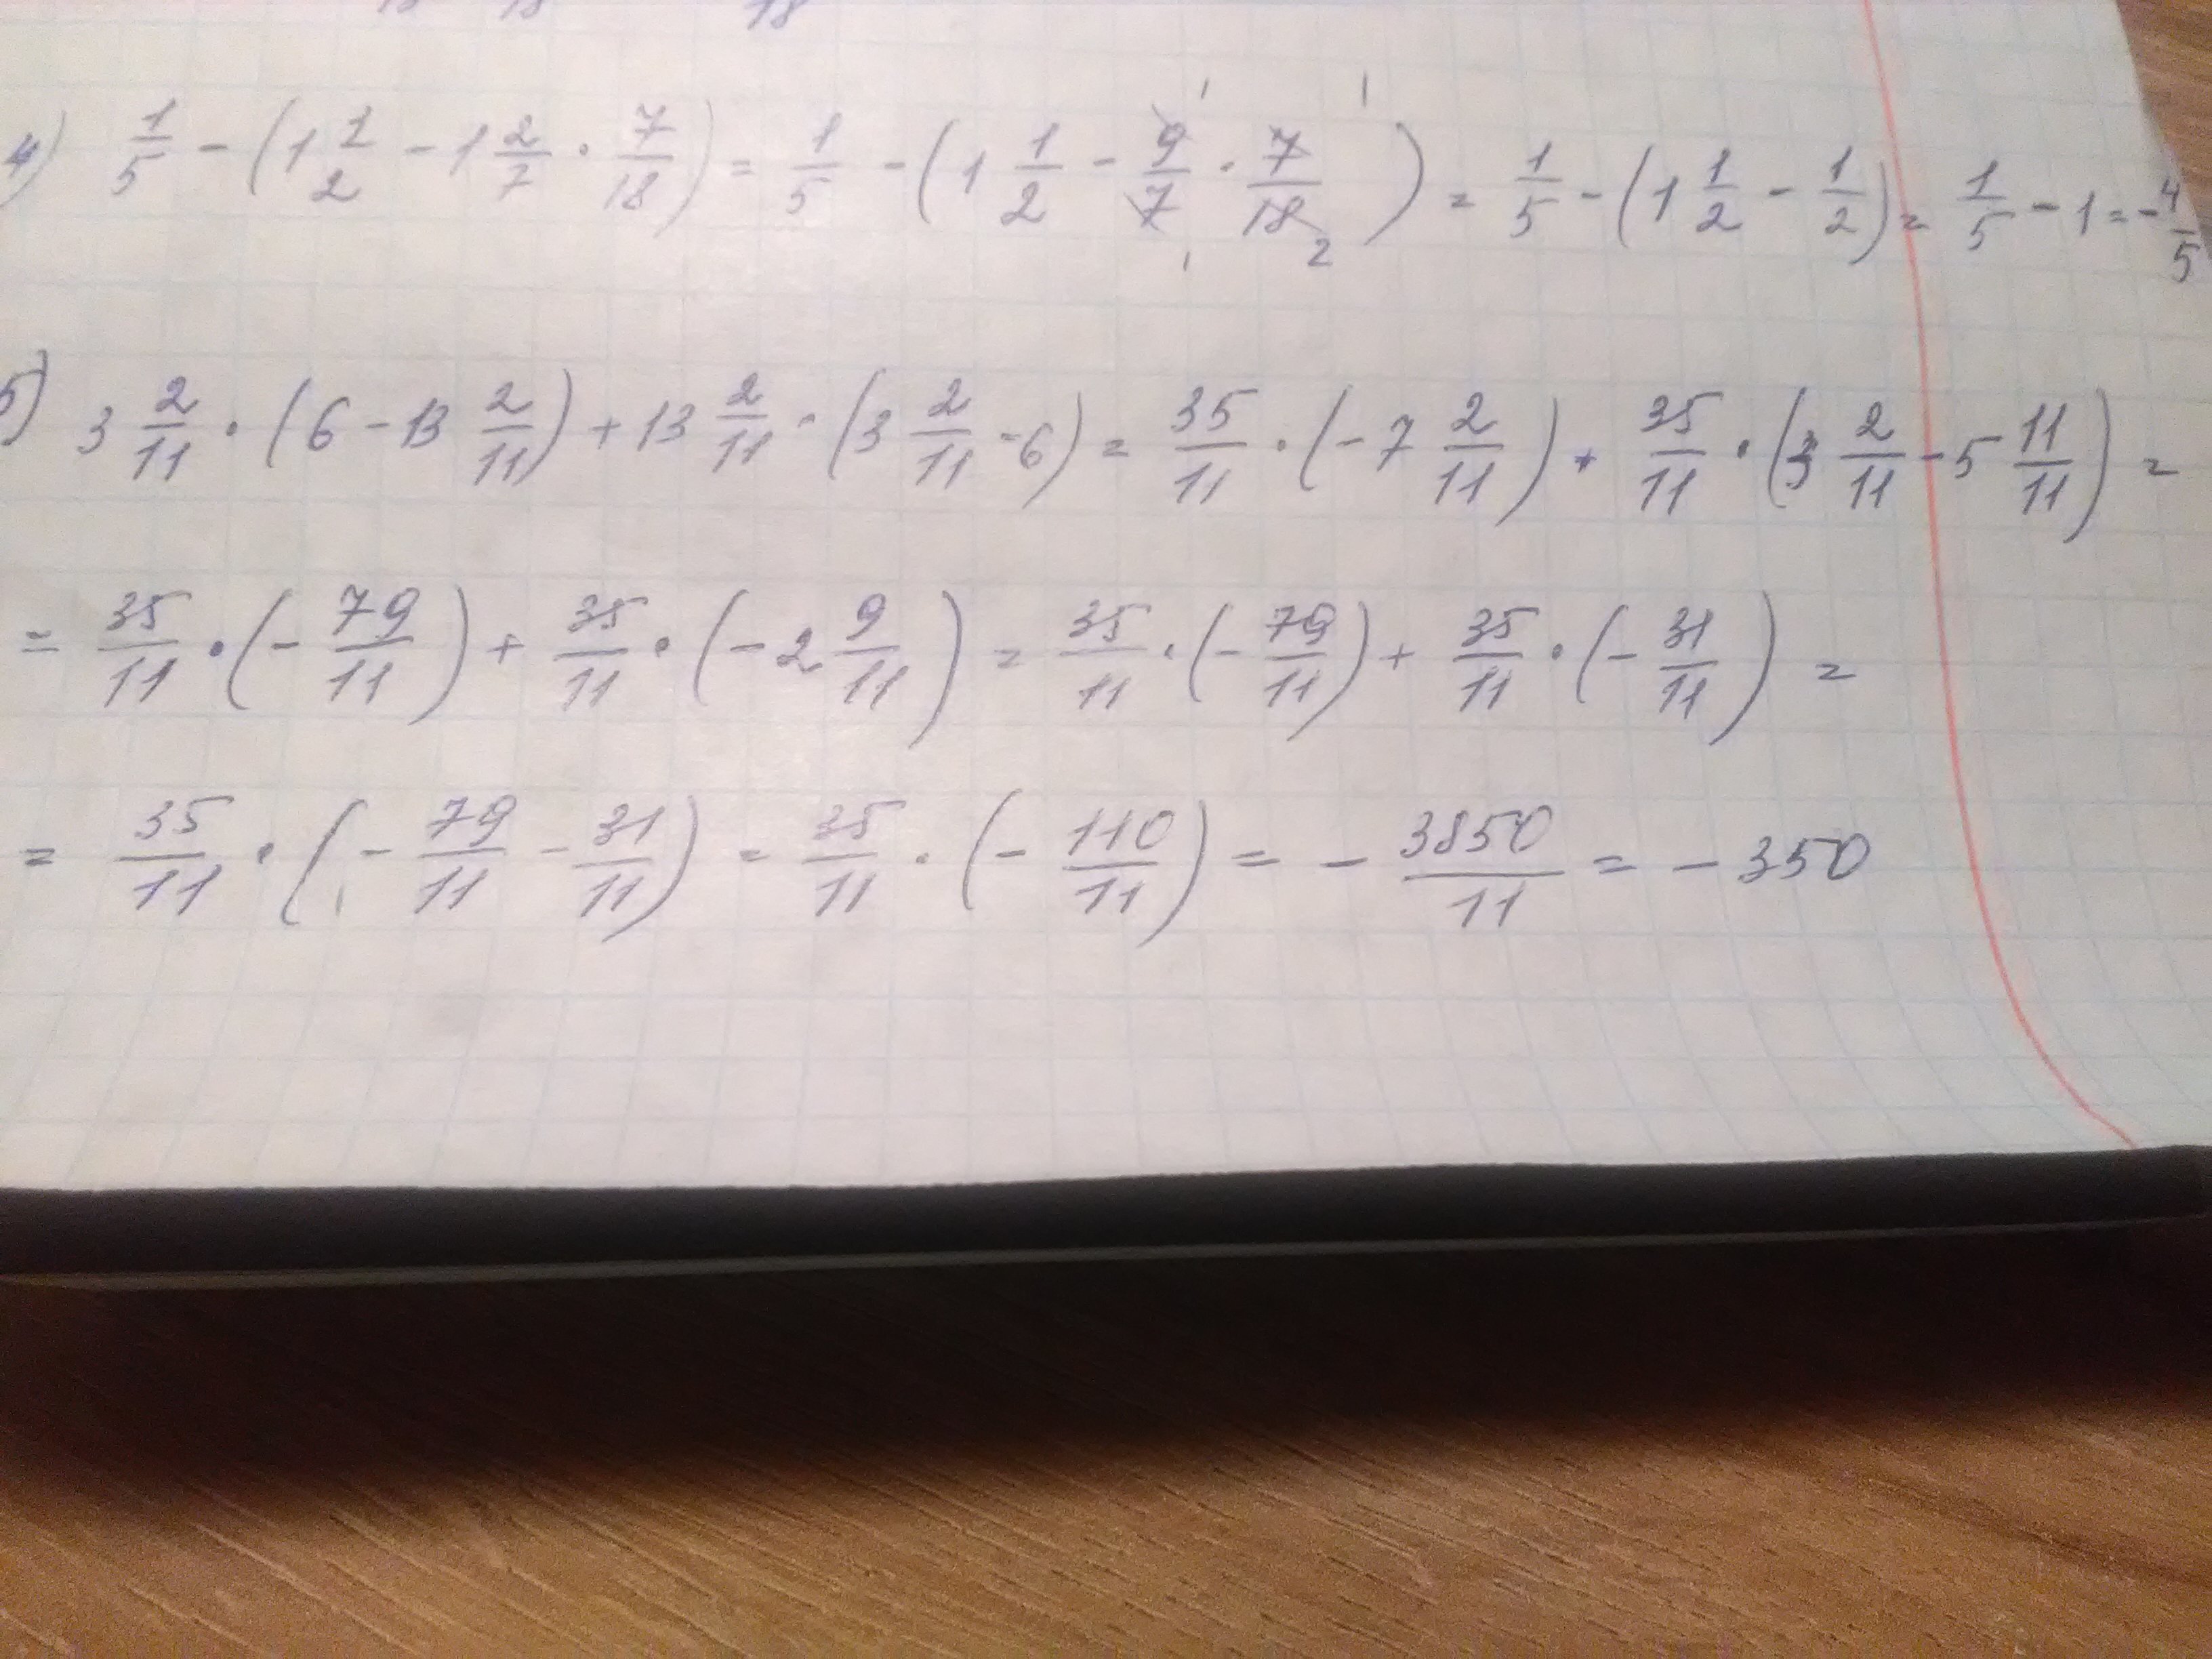 4) 1/5 - (1 1/2 - 1 2/7 · 7/18) = 1/5 - (1 1/2 - 9/7 · 7/18) = 1/5 - (1 1/2 - 1/2) = 1/5 - 1 = - 4/5
5) 3 2/11 · (6 - 13 2/11) + 13 2/11 · (3 2/11 - 6) = 35/11 · (- 7 2/11) + 35/11 · (3 2/11 - 5 11/11) =
= 35/11 · (- 79/11) + 35/11 · (- 2 9/11) = 35/11 · (- 79/11) + 35/11 · (- 31/11) =
= 35/11 · (- 79/11 - 31/11) = 35/11 · (- 110/11) = - 3850/11 = - 350